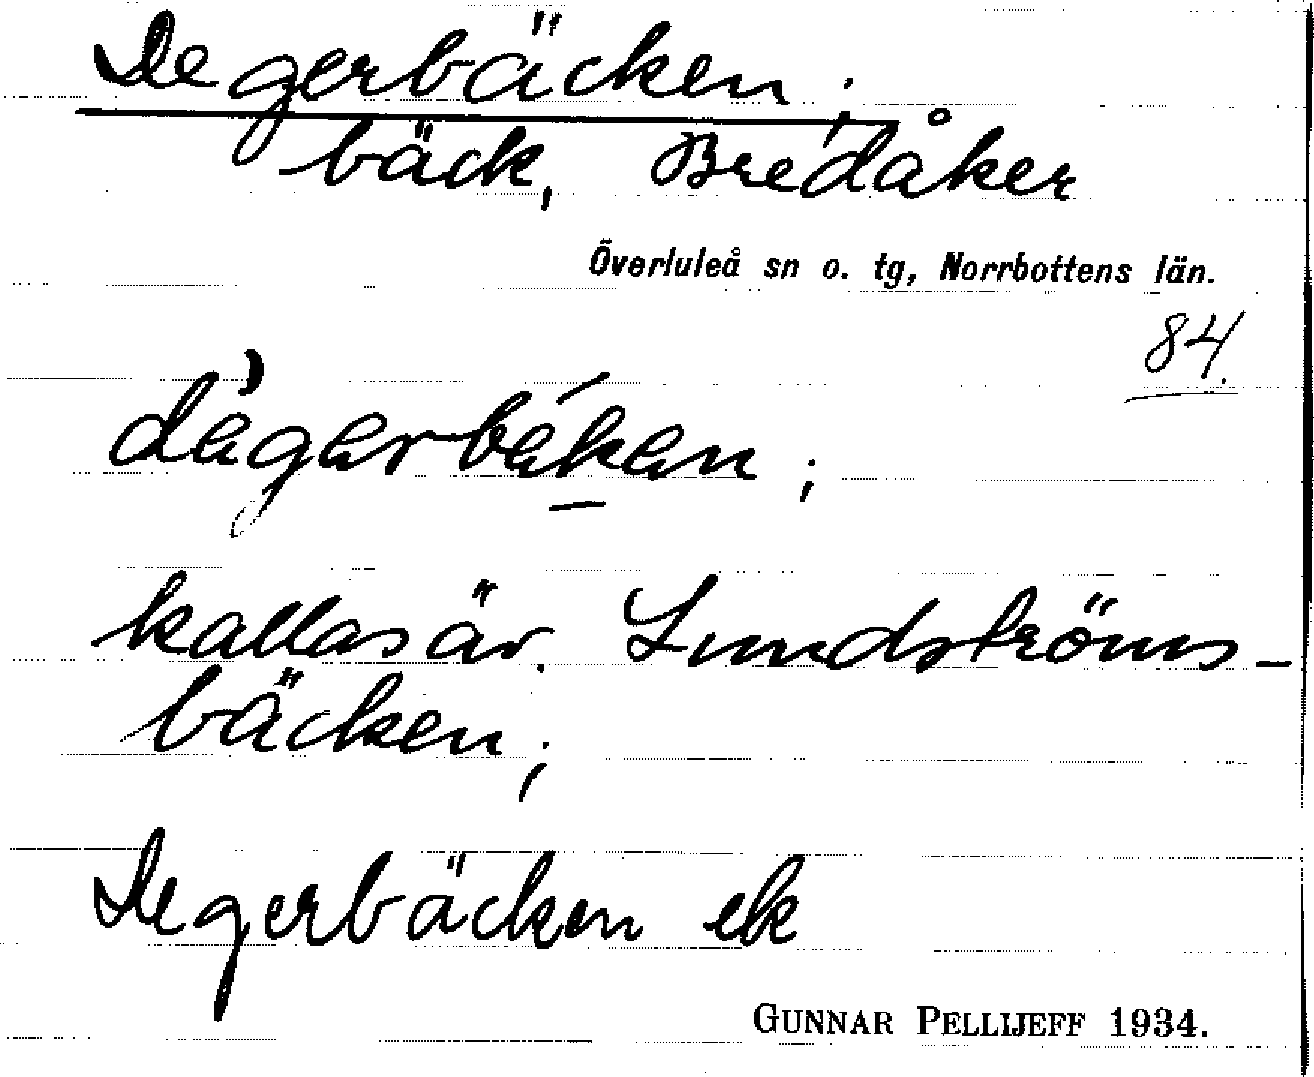 Degerbäcken;
bäck, Bredåker
Överluleå sn o. tg, Norrbottens län.
84.
kallas äv. Lundströms-
bäcken;
Degerbäcken ek
GUNNAR PELLIJEFF 1934.